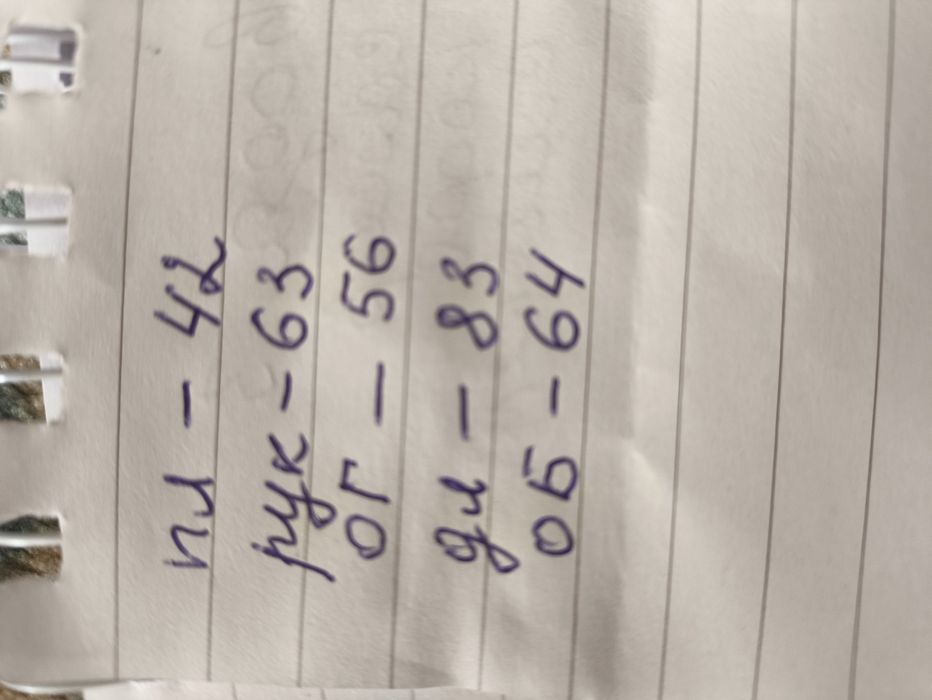 пл - 42
рук - 63
ог - 56
дл - 83
об - 64